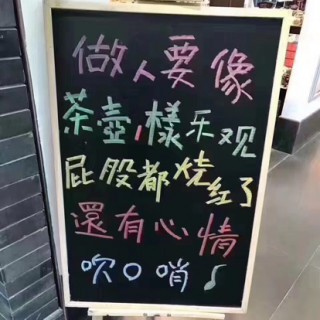 做人要像
茶壺一樣乐观
屁股都烧红了
還有心情
吹口哨♪